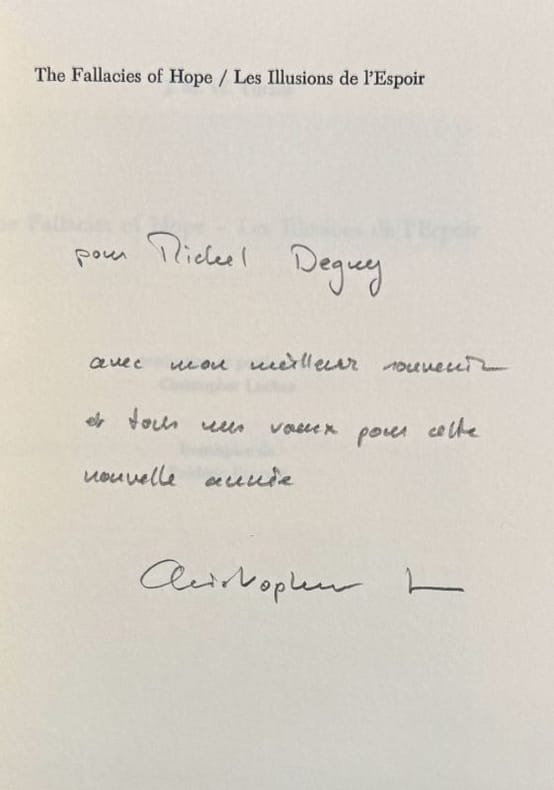 The Fallacies of Hope / Les Illusions de l'Espoir
pour Michel Deguy
avec mon meilleur souvenir
et tous mes vœux pour cette
nouvelle année
Christopher